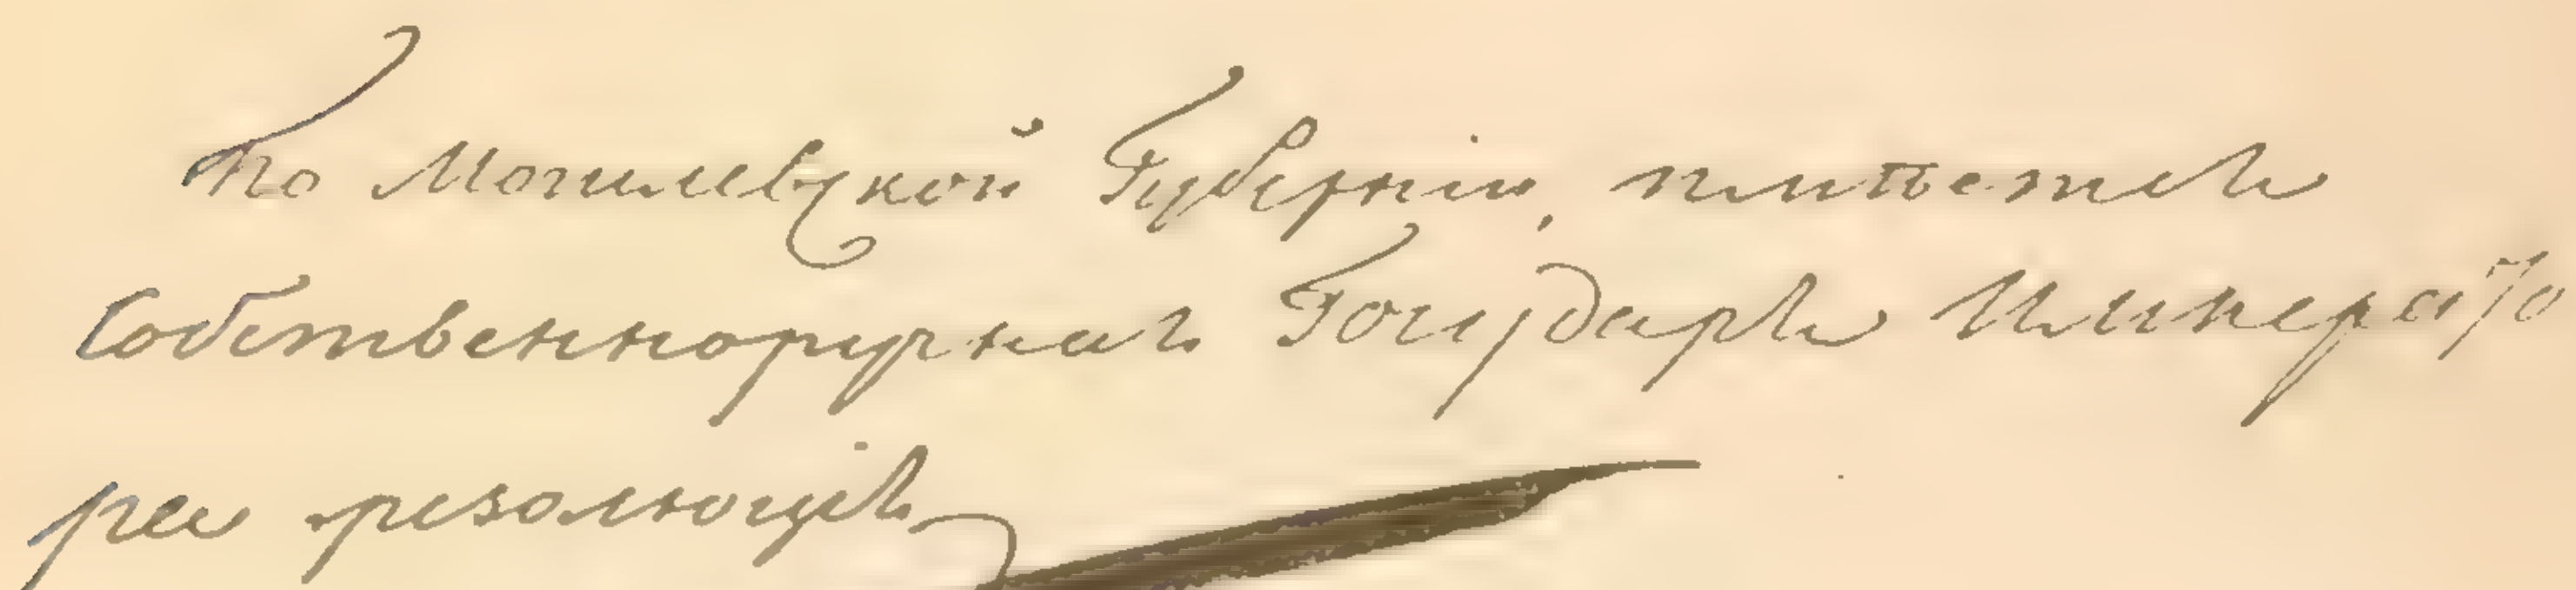 По Могилевской Губернiи, имѣется
Собственноручная Государя Импера́то
ра резолюцiя